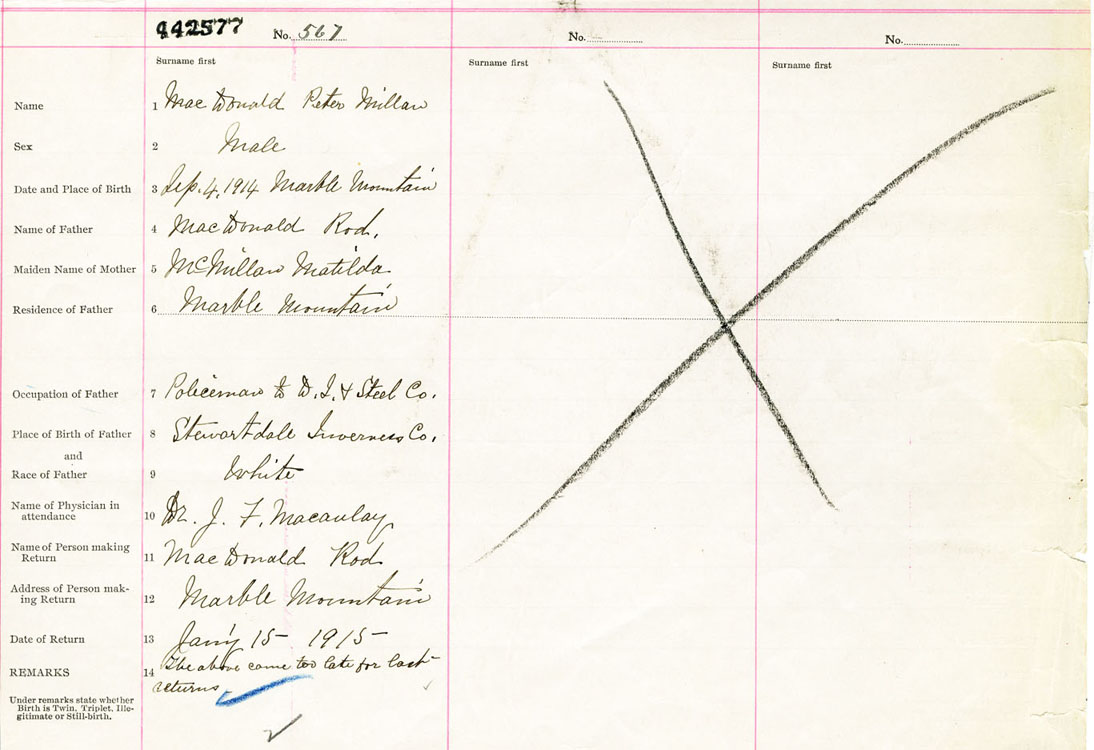 442577 No. 567 No. No.
Surname first Surname first Surname first
Name 1 MacDonald Peter Millan
Sex 2 Male
Date and Place of Birth 3 Sep. 4, 1914 Marble Mountain
Name of Father 4 MacDonald Rod.
Maiden Name of Mother 5 McMillan Matilda
Residence of Father 6 Marble Mountain
Occupation of Father 7 Policeman to D. I. & Steel Co.
Place of Birth of Father 8 Stewartdale Inverness Co.
and
Race of Father 9 White
Name of Physician in
attendance 10 Dr. J. F. Macaulay
Name of Person making
Return 11 MacDonald Rod
Address of Person mak-
ing Return 12 Marble Mountain
Date of Return 13 Jan'y 15 - 1915 -
REMARKS 14 The above came too late for last
returns
Under remarks state whether
Birth is Twin, Triplet, Ille-
gitimate or Still-birth.